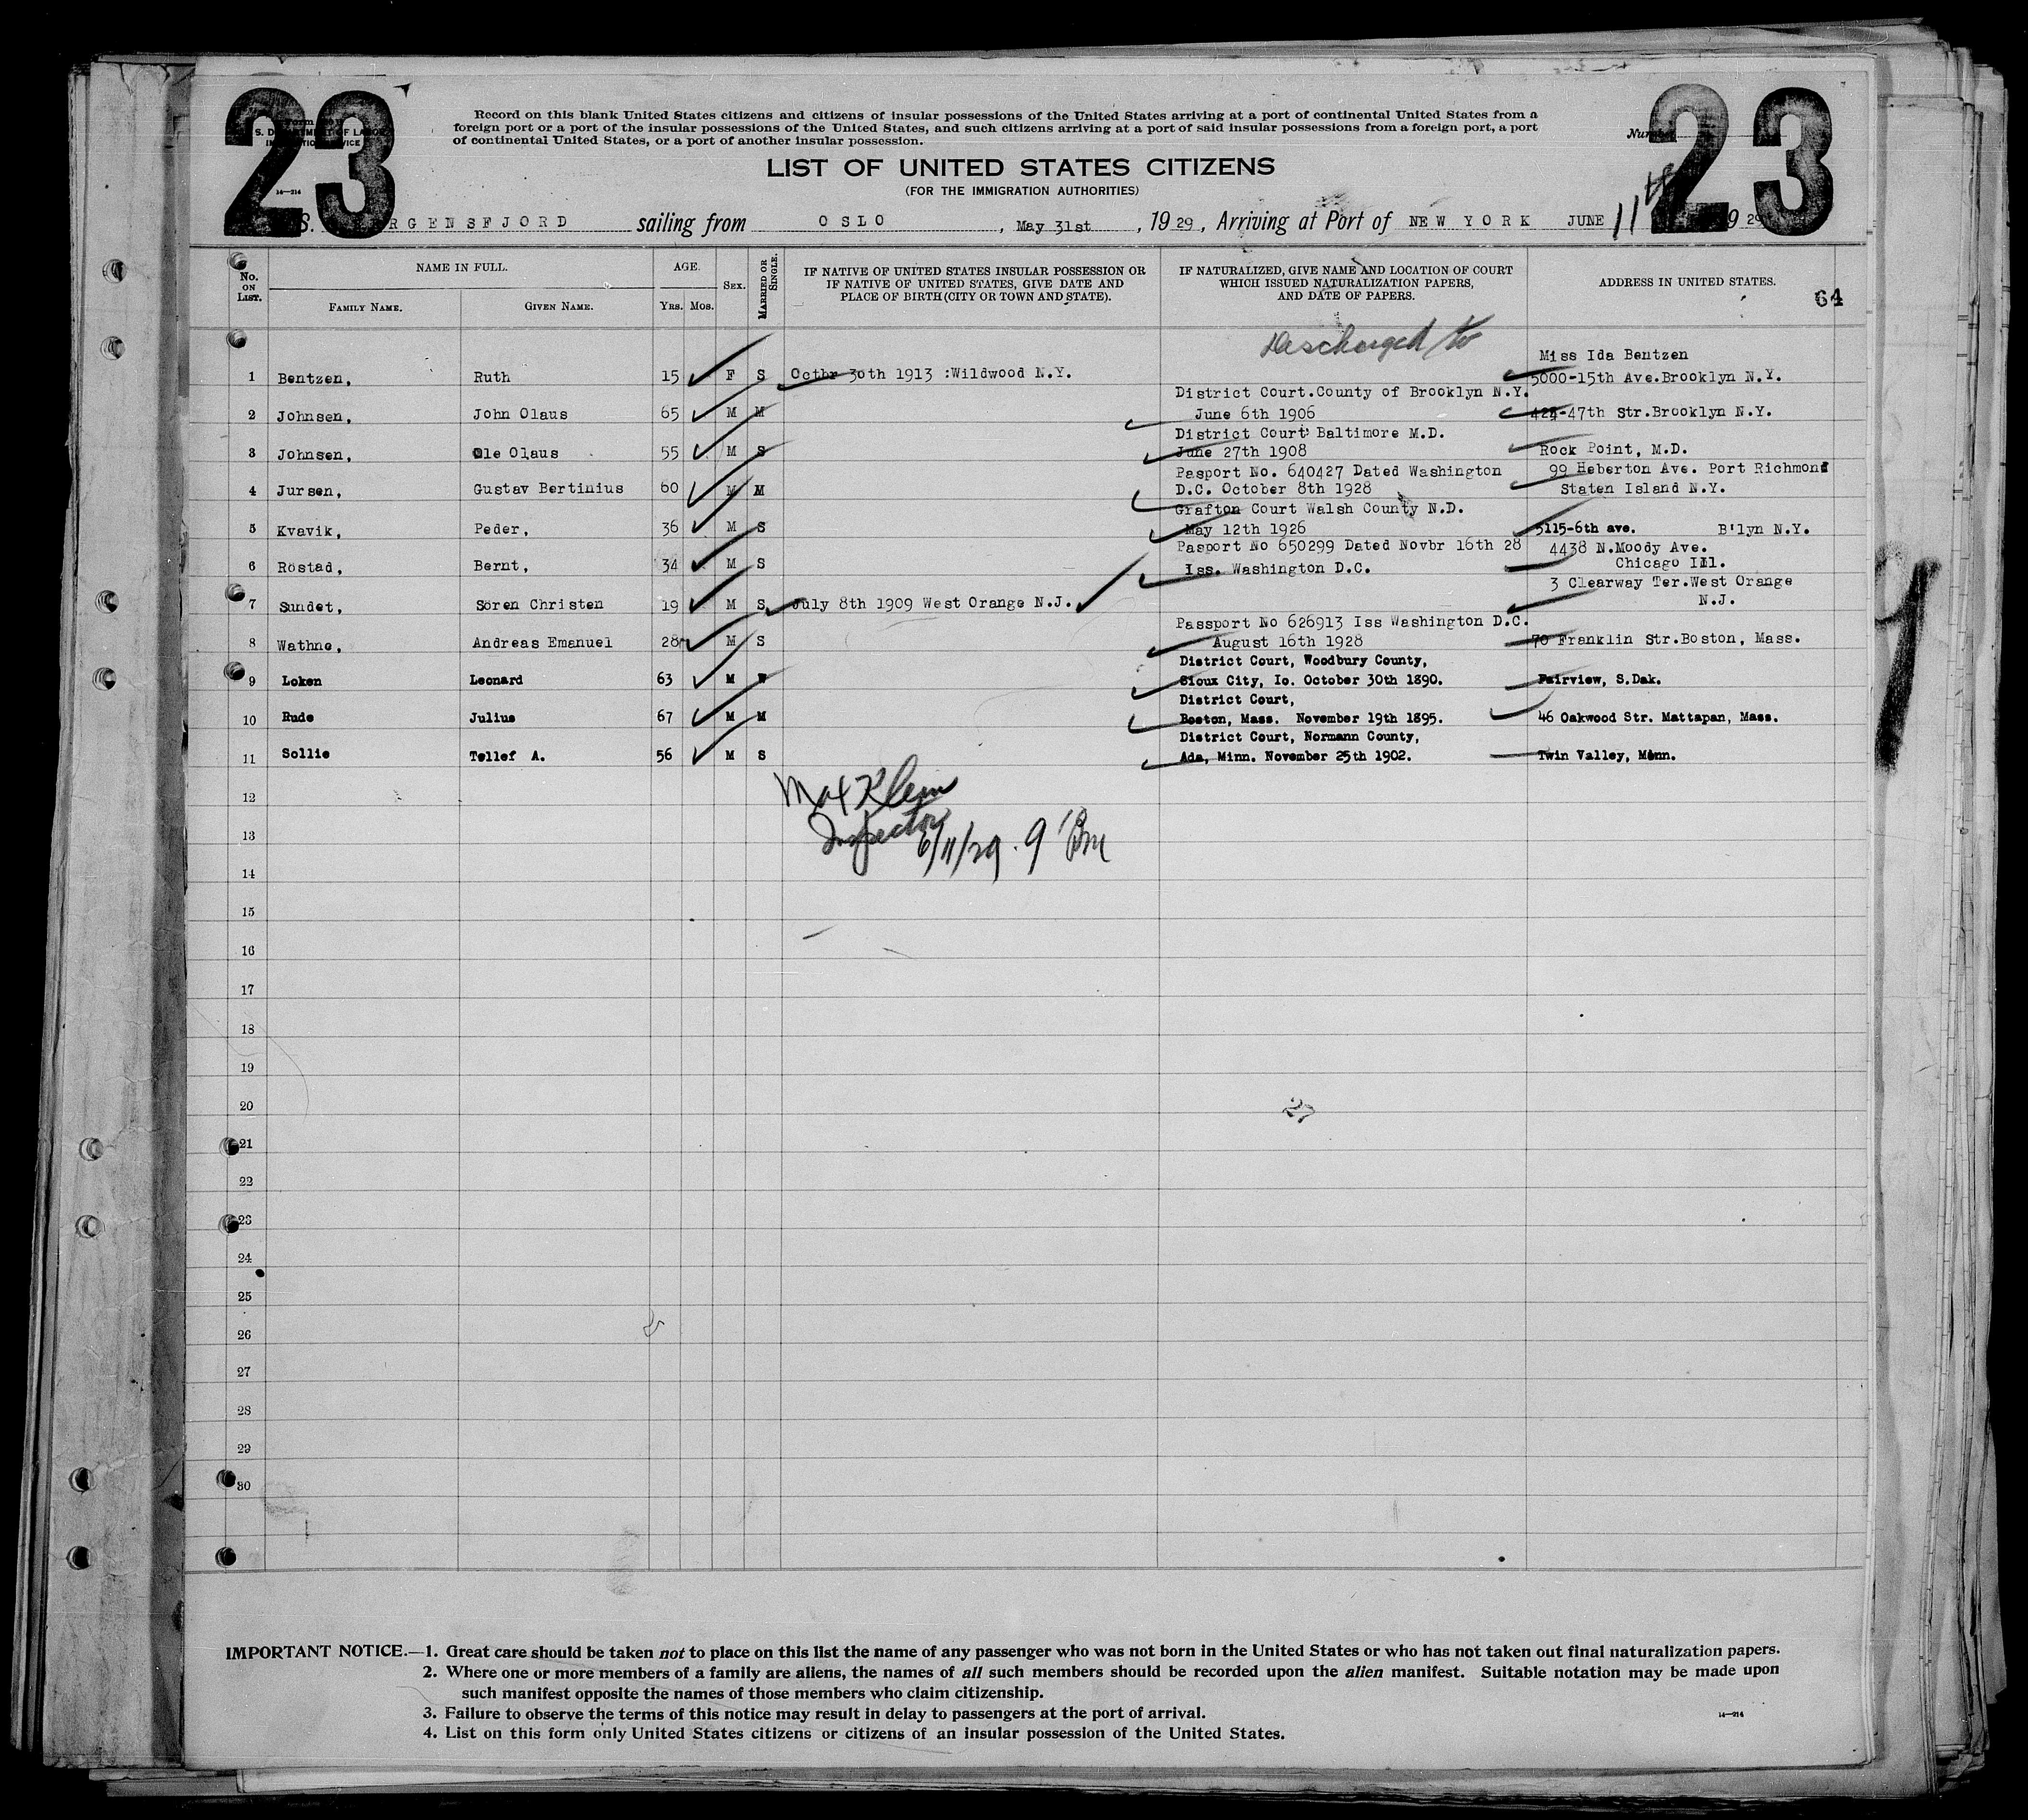 23
23
S. DEPARTMENT OF LABOR
14—214
Record on this blank United States citizens and citizens of insular possessions of the United States arriving at a port of continental United States from a
foreign port or a port of the insular possessions of the United States, and such citizens arriving at a port of said insular possessions from a foreign port, a port
of continental United States, or a port of another insular possession.
Number
LIST OF UNITED STATES CITIZENS
(FOR THE IMMIGRATION AUTHORITIES)
S. RGENSFJORD sailing from OSLO, May 31st, 1929, Arriving at Port of NEW YORK JUNE 11th 929
No. ON LIST. NAME IN FULL. AGE. SEX. MARRIED OR SINGLE. IF NATIVE OF UNITED STATES INSULAR POSSESSION OR IF NATIVE OF UNITED STATES, GIVE DATE AND PLACE OF BIRTH (CITY OR TOWN AND STATE). IF NATURALIZED, GIVE NAME AND LOCATION OF COURT WHICH ISSUED NATURALIZATION PAPERS, AND DATE OF PAPERS. ADDRESS IN UNITED STATES. 64
FAMILY NAME. GIVEN NAME. Yrs. Mos.
Discharged to
Miss Ida Bentzen
1 Bentzen, Ruth 15 F S Octbr 30th 1913 :Wildwood N.Y. 5000-15th Ave.Brooklyn N.Y.
District Court.County of Brooklyn N.Y.
2 Johnsen, John Olaus 65 M M June 6th 1906 424-47th Str.Brooklyn N.Y.
District Court Baltimore M.D.
3 Johnsen, Ole Olaus 55 M S June 27th 1908 Rock Point, M.D.
Pasport No. 640427 Dated Washington 99 Heberton Ave. Port Richmond
4 Jursen, Gustav Bertinius 60 M M D.C. October 8th 1928 Staten Island N.Y.
Grafton Court Walsh County N.D.
5 Kvavik, Peder, 36 M S May 12th 1926 5115-6th ave. B'lyn N.Y.
Pasport No 650299 Dated Novbr 16th 28 4438 N.Moody Ave.
6 Röstad, Bernt, 34 M S Iss. Washington D.C. Chicago Ill.
3 Clearway Ter.West Orange
7 Sundet, Sören Christen 19 M S July 8th 1909 West Orange N.J. N.J.
Passport No 626913 Iss Washington D.C.
8 Wathne, Andreas Emanuel 28 M S August 16th 1928 70 Franklin Str.Boston, Mass.
District Court, Woodbury County,
9 Loken Leonard 63 M W Sioux City, Io. October 30th 1890. Fairview, S.Dak.
District Court,
10 Rude Julius 67 M M Boston, Mass. November 19th 1895. 46 Oakwood Str. Mattapan, Mass.
District Court, Normann County,
11 Sollie Tellef A. 56 M S Ada, Minn. November 25th 1902. Twin Valley, Minn.
12
Max Klein
13
Inspector
6/11/29. 9 Pm
14
15
16
17
18
19
20
27
21
22
23
24
25
26
27
28
29
30
IMPORTANT NOTICE.—1. Great care should be taken not to place on this list the name of any passenger who was not born in the United States or who has not taken out final naturalization papers.
2. Where one or more members of a family are aliens, the names of all such members should be recorded upon the alien manifest. Suitable notation may be made upon
such manifest opposite the names of those members who claim citizenship.
3. Failure to observe the terms of this notice may result in delay to passengers at the port of arrival.
14—214
4. List on this form only United States citizens or citizens of an insular possession of the United States.